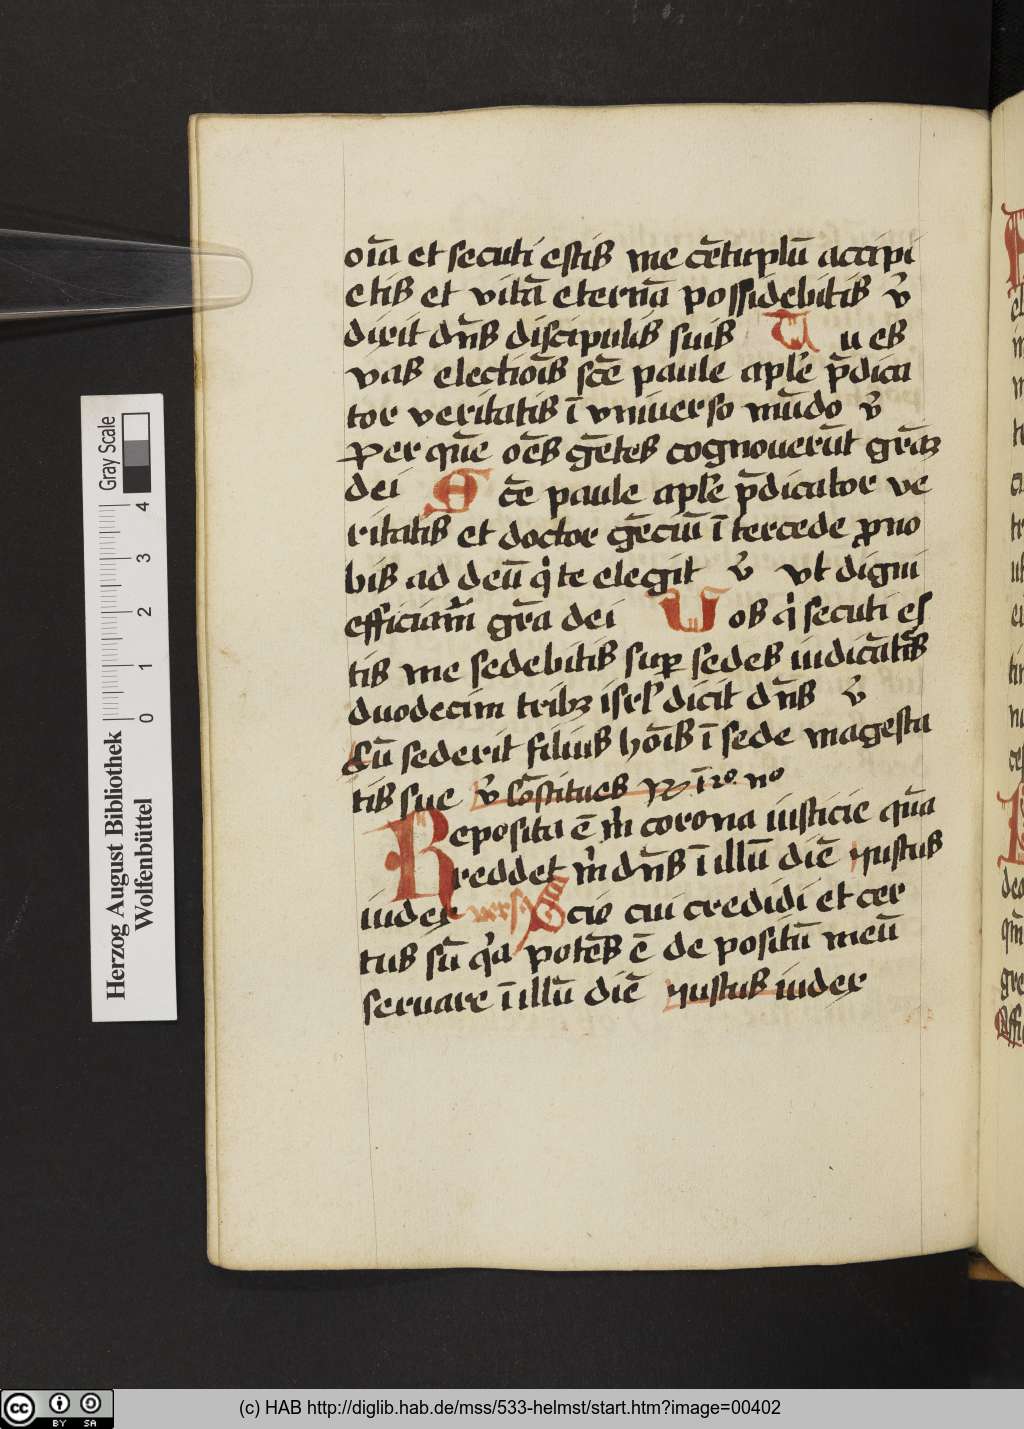 oīa et secuti estis me cētuplū accipi
etis et vitā eternā possidebitis ℣
dixit dn̄s discipulis suis Tu es
vas electiōis scē paule aplē p̄dica
tor veritatis ī vniuerso mūdo ℣
Per quē oēs gētes cognouerūt grāꝫ
dei Scē paule aplē p̄dicator ve
ritatis et doctor gēciū ītercede pro no
bis ad deū qͥ te elegit ℣ Vt digni
efficiam̄ grā dei Uos qͥ secuti es
tis me sedebitis suꝑ sedes iudicātes
duodecim tribꝫ isrl̄ dicit dn̄s ℣
Cū sederit filius hoīs ī sede magesta
tis sue ℣ Cōstitues
Reposita ē mͥ corona iusticie quā
reddet mͥ dn̄s ī illū diē iustus
iudex Scio cui credidi et cer
tus sū qͥa potēs ē de positū meū
seruare ī illū diē iustus iudex
Gray Scale
0 1 2 3 4
Herzog August Bibliothek
Wolfenbüttel
cc BY SA
(c) HAB http://diglib.hab.de/mss/533-helmst/start.htm?image=00402